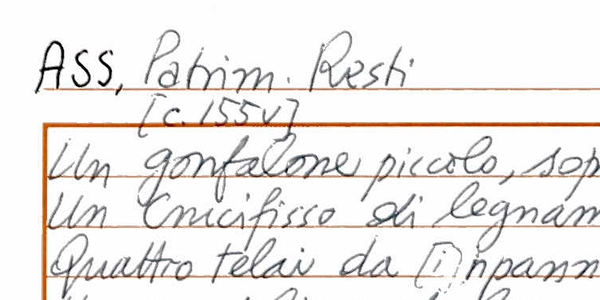 ASS, Patrim. Resti
[c. 155v]
Un gonfalone piccolo, sop
Un Crucifisso di legnam
Quattro telai da [i]npann